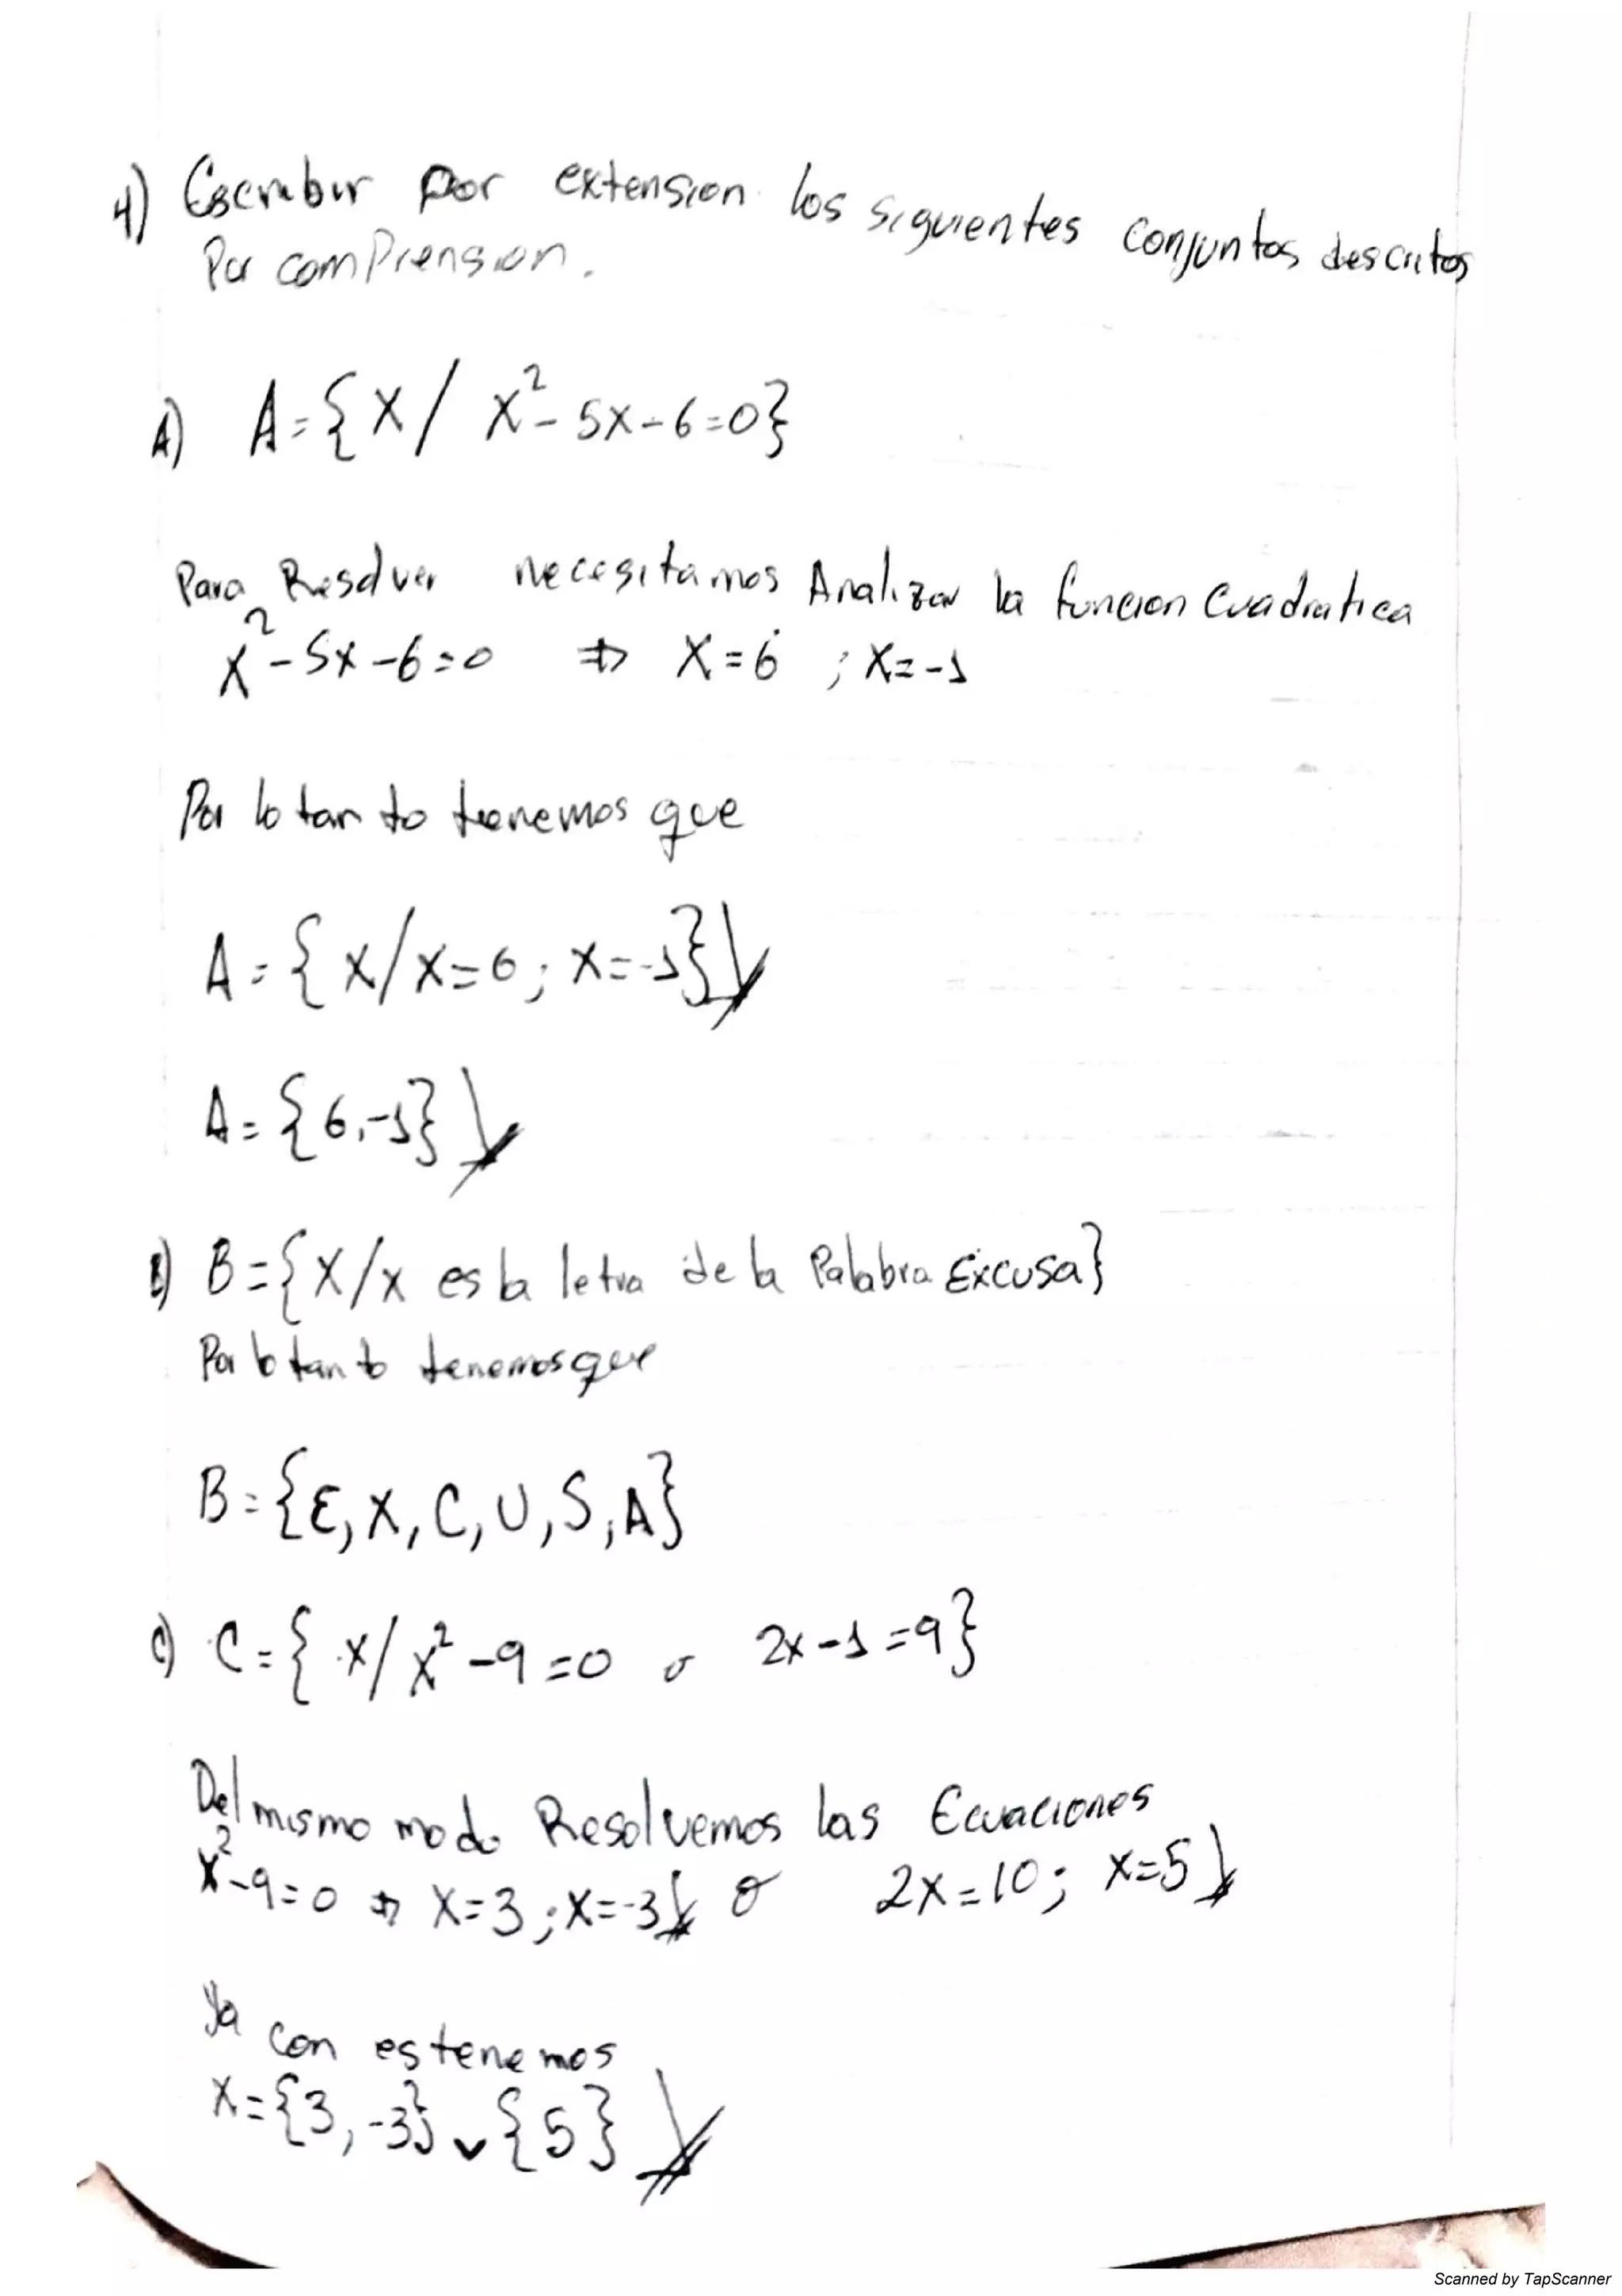 4) Escribir por extension los siguientes conjuntos descritos
Por comprension.
A) A={x/ x²-5x-6=0}
Para Resolver necesitamos Analizar la funcion Cuadratica
x²-5x-6=0 ⇒ x=6 ; x=-1
Por lo tanto tenemos que
A={x/x=6; x=-1}
A={6,-1}
B) B={x/x es la letra de la Palabra Excusa}
Por lo tanto tenemos que
B={E,X,C,U,S,A}
C) C={x/x²-9=0 o 2x-1=9}
Del mismo modo Resolvemos las Ecuaciones
x²-9=0 ⇒ x=3;x=-3 o 2x=10; x=5
Ya con es tenemos
x={3,-3} v {5}
Scanned by TapScanner